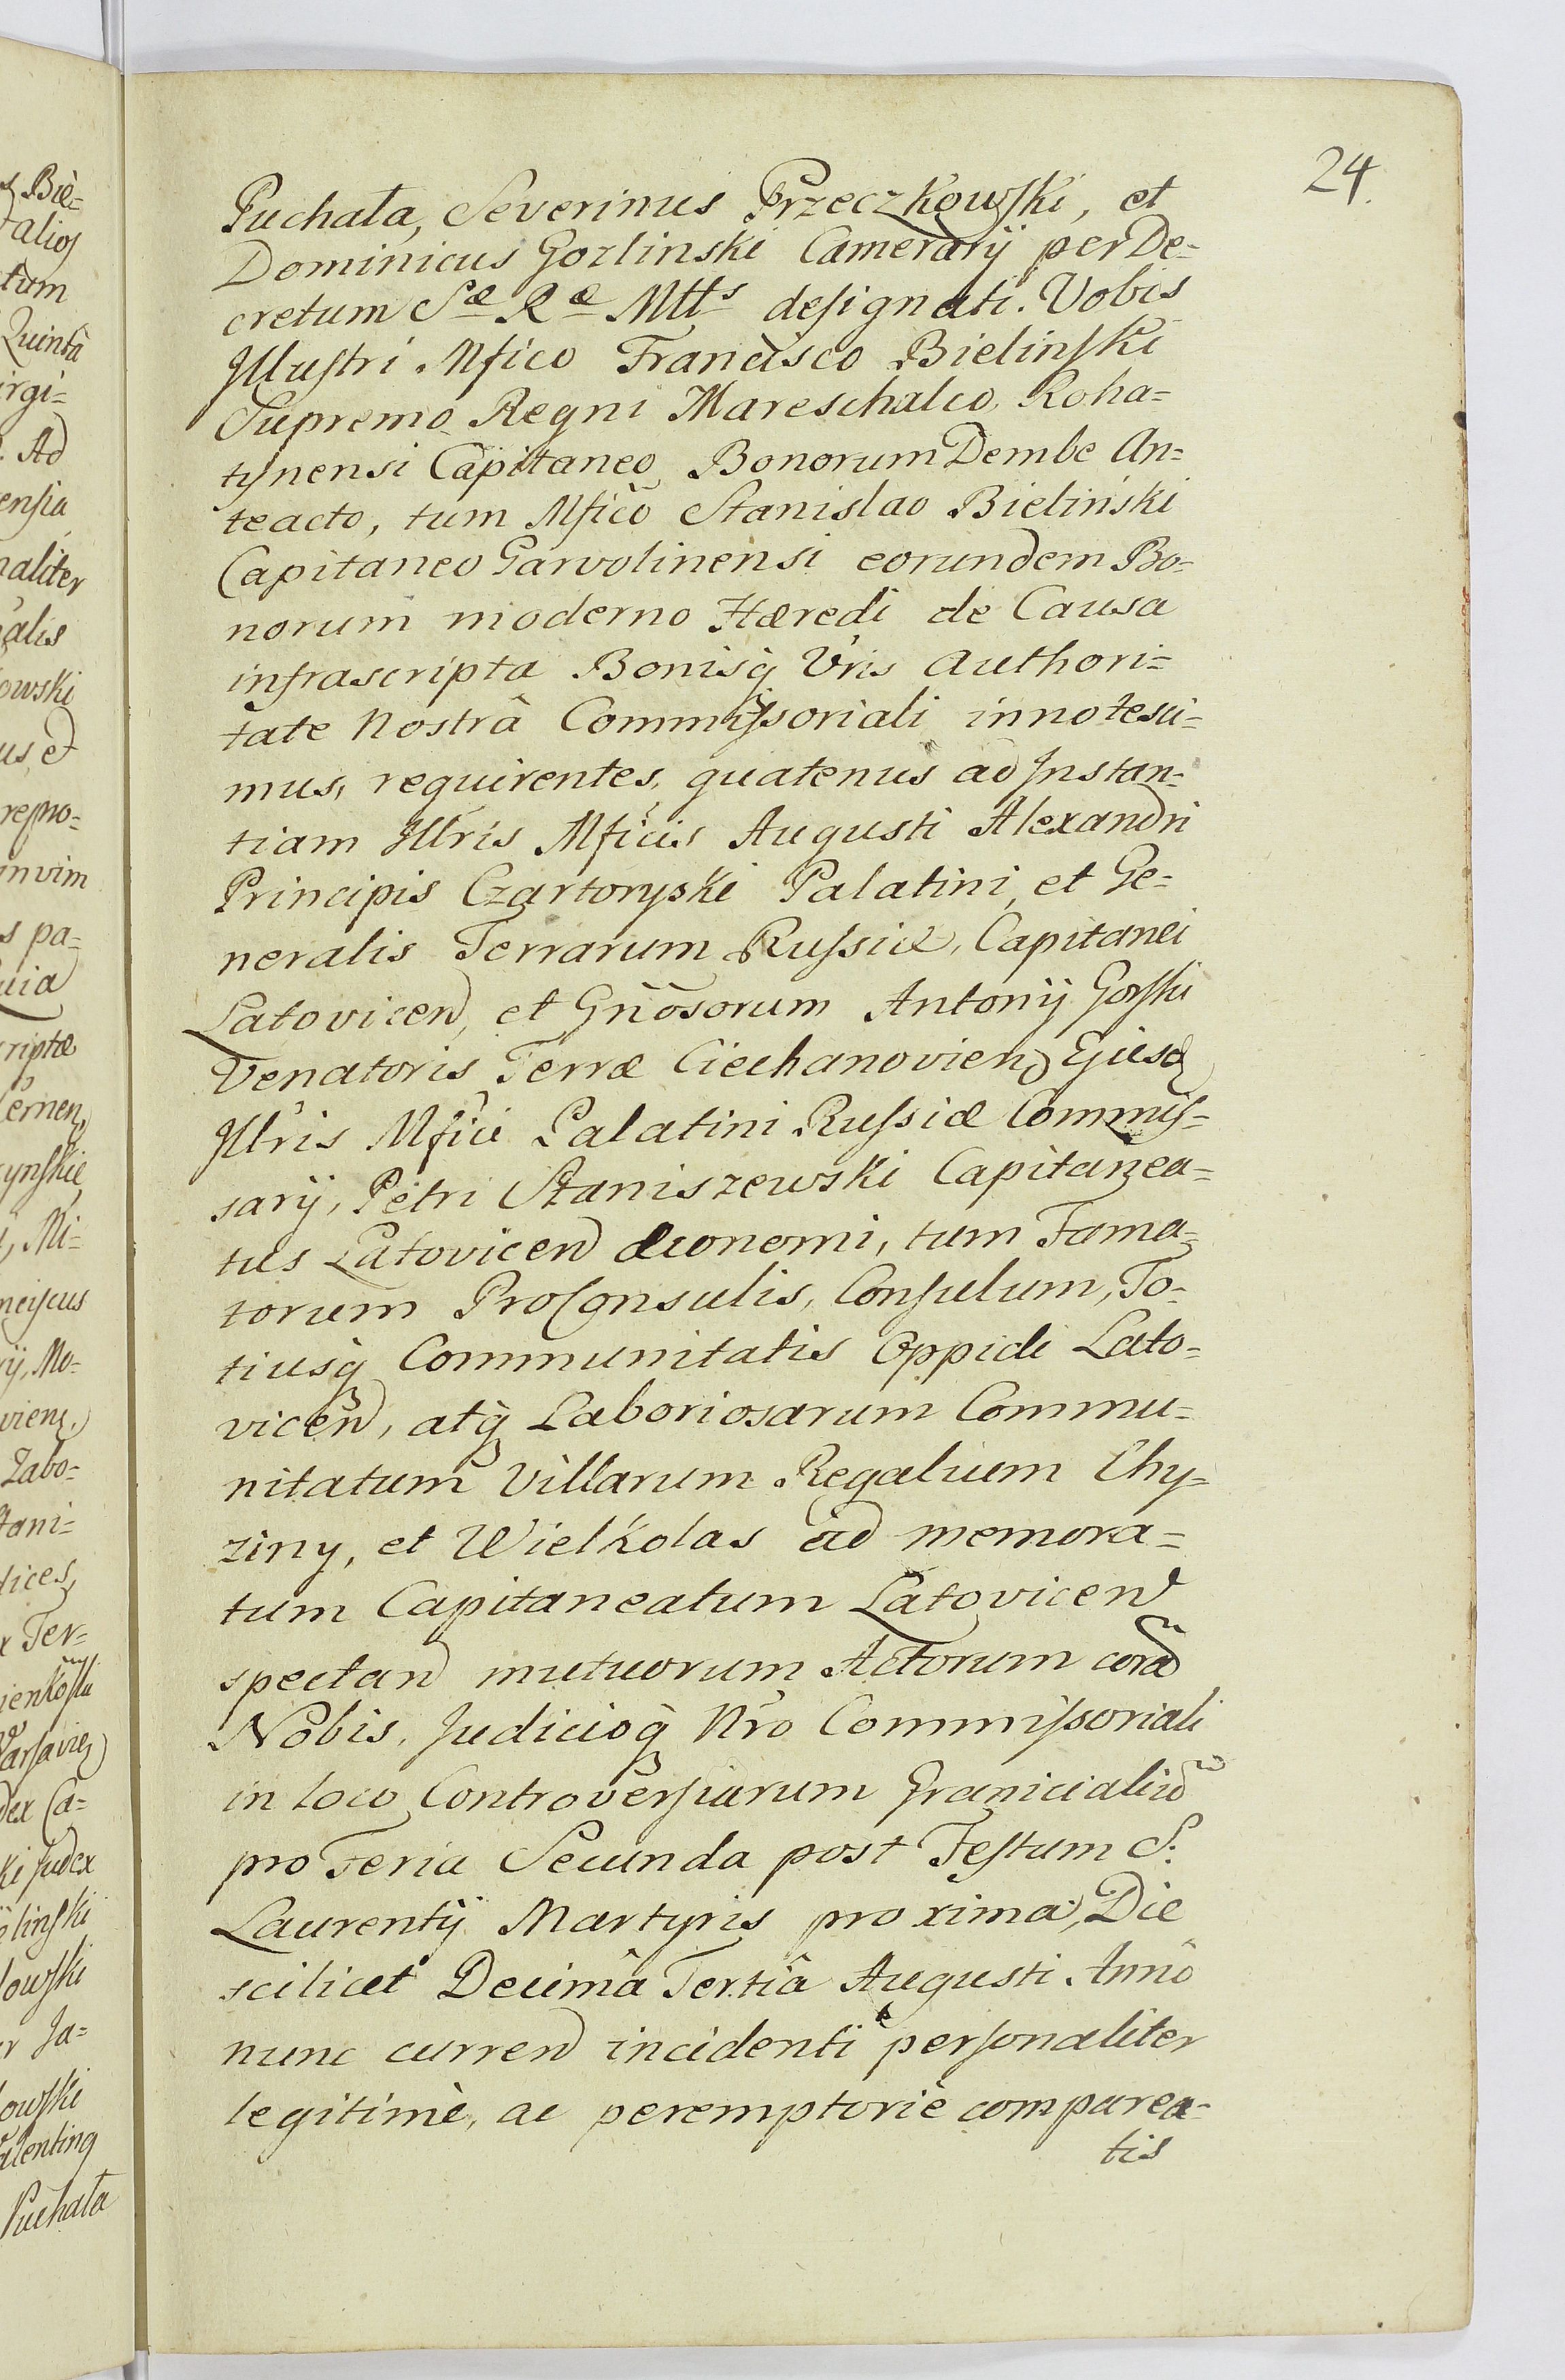 24.
Puchała, Severinus Przeczkowſki, et
Dominicus Gozlinski Camerarÿ per De=
cretum Sæ Ræ Mtts deſignati. Vobis
Jlluſtri Mfico Francisco Bielinſki
Supremo Regni Mareschalco, Roha=
tynensi Capitaneo, Bonorum Dembe An=
teacto, tum Mfico Stanislao Bieliński
Capitaneo Garvolinensi eorundem Bo=
norum moderno Hæredi de Causa
infrascripta Bonisq̃ Vris Authori=
tate Nostrâ Commiſsoriali innotesci=
mus, requirentes, quatenus ad Jnstan=
tiam Jllris Mficis Augusti Alexandri
Principis Czartoryski Palatini, et Ge=
neralis Terrarum Ruſsiæ, Capitanei
Latovicen, et Gñosorum Antonÿ Gorſki
Venatoris Terræ Ciechanovien, Ejusd
Jllris Mfici Palatini Ruſsiæ Commiſ=
sarÿ, Petri Staniszewski Capitanea=
tus Latovicen Œconomi, tum Fama=
torum ProConsulis, Conſulum, To=
tiusq̃ Communitatis Oppidi Lato=
vicen, atq̃ Laboriosarum Commu=
nitatum Villarum Regalium Chy=
ziny, et Wielkolas ad memora=
tum Capitaneatum Latovicen
spectan mutuorum Actorum corã
Nobis, Judicioq̃ Nro Commiſsoriali
in loco Controverſiarum Granicialiũ
pro Feria Secunda post Feſtum S.
Laurentÿ Martyris proxima, Die
scilicet Decimâ Tertiâ Augusti Anno
nunc curren incidenti perſonaliter
legitimè, ac peremptoriè comparea=
tis
Biè=
alioſ
tum
Quintâ
irgi=
Ad
enſia
naliter
alis
owski
us, et
repno=
invim
s pa=
uia
riptæ
ernen
ynſkie
Mi=
nciſcus
ÿ, Mo=
vien,
Zabo=
tani=
dices,
x Ter=
ienkoſki
arſavien
dex Ca=
ki Judex
elinſki
lowſki
r Ja=
lowſki
alenting
Puchała